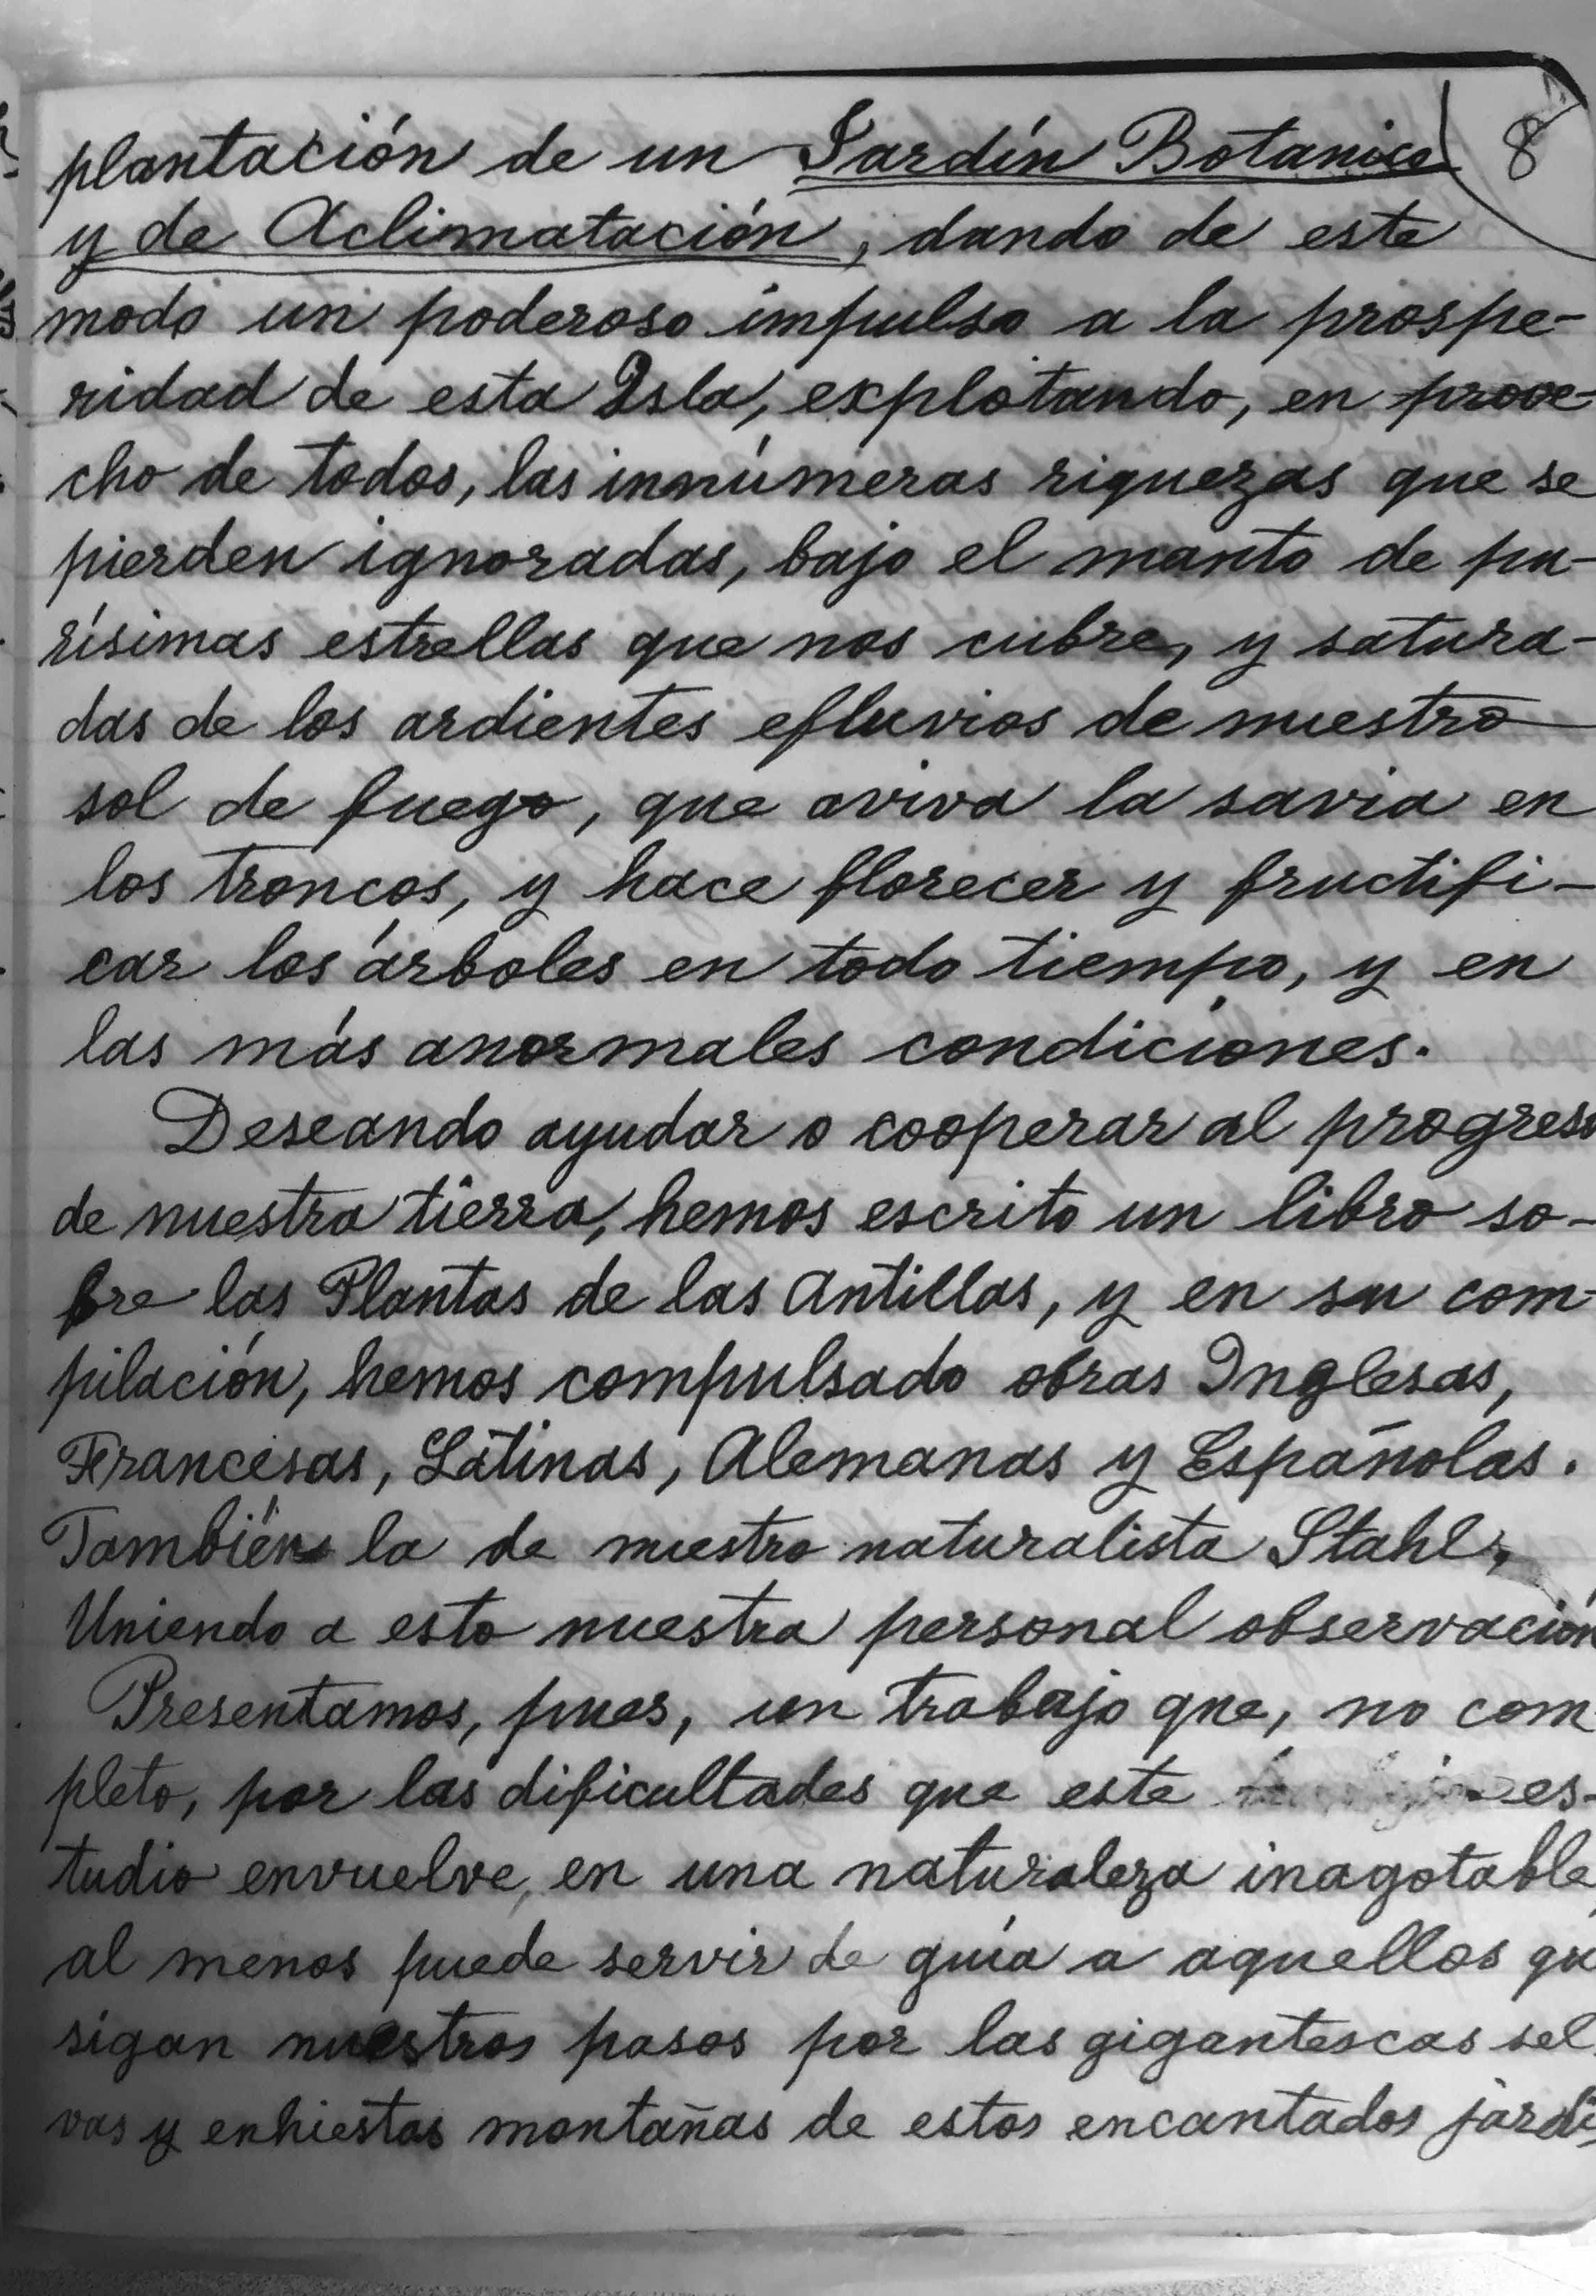 plantación de un Jardín Botanico 8
y de Aclimatación, dando de este
modo un poderoso impulso a la prospe-
ridad de esta Isla, explotando, en prove-
cho de todos, las innúmeras riquezas que se
pierden ignoradas, bajo el manto de pu-
rísimas estrellas que nos cubre, y satura-
das de los ardientes efluvios de nuestro
sol de fuego, que aviva la savia en
los troncos, y hace florecer y fructifi-
car los árboles en todo tiempo, y en
las más anormales condiciones.
Deseando ayudar o cooperar al progreso
de nuestra tierra, hemos escrito un libro so-
bre las Plantas de las Antillas, y en su com-
pilación, hemos compulsado obras Inglesas,
Francesas, Latinas, Alemanas y Españolas.
También la de nuestro naturalista Stahl,
Uniendo a esto nuestra personal observación
Presentamos, pues, un trabajo que, no com
pleto, por las dificultades que este es-
tudio envuelve, en una naturaleza inagotable,
al menos puede servir de guía a aquellos qu
sigan nuestros pasos por las gigantescas sel
vas y enhiestas montañas de estos encantados jardi